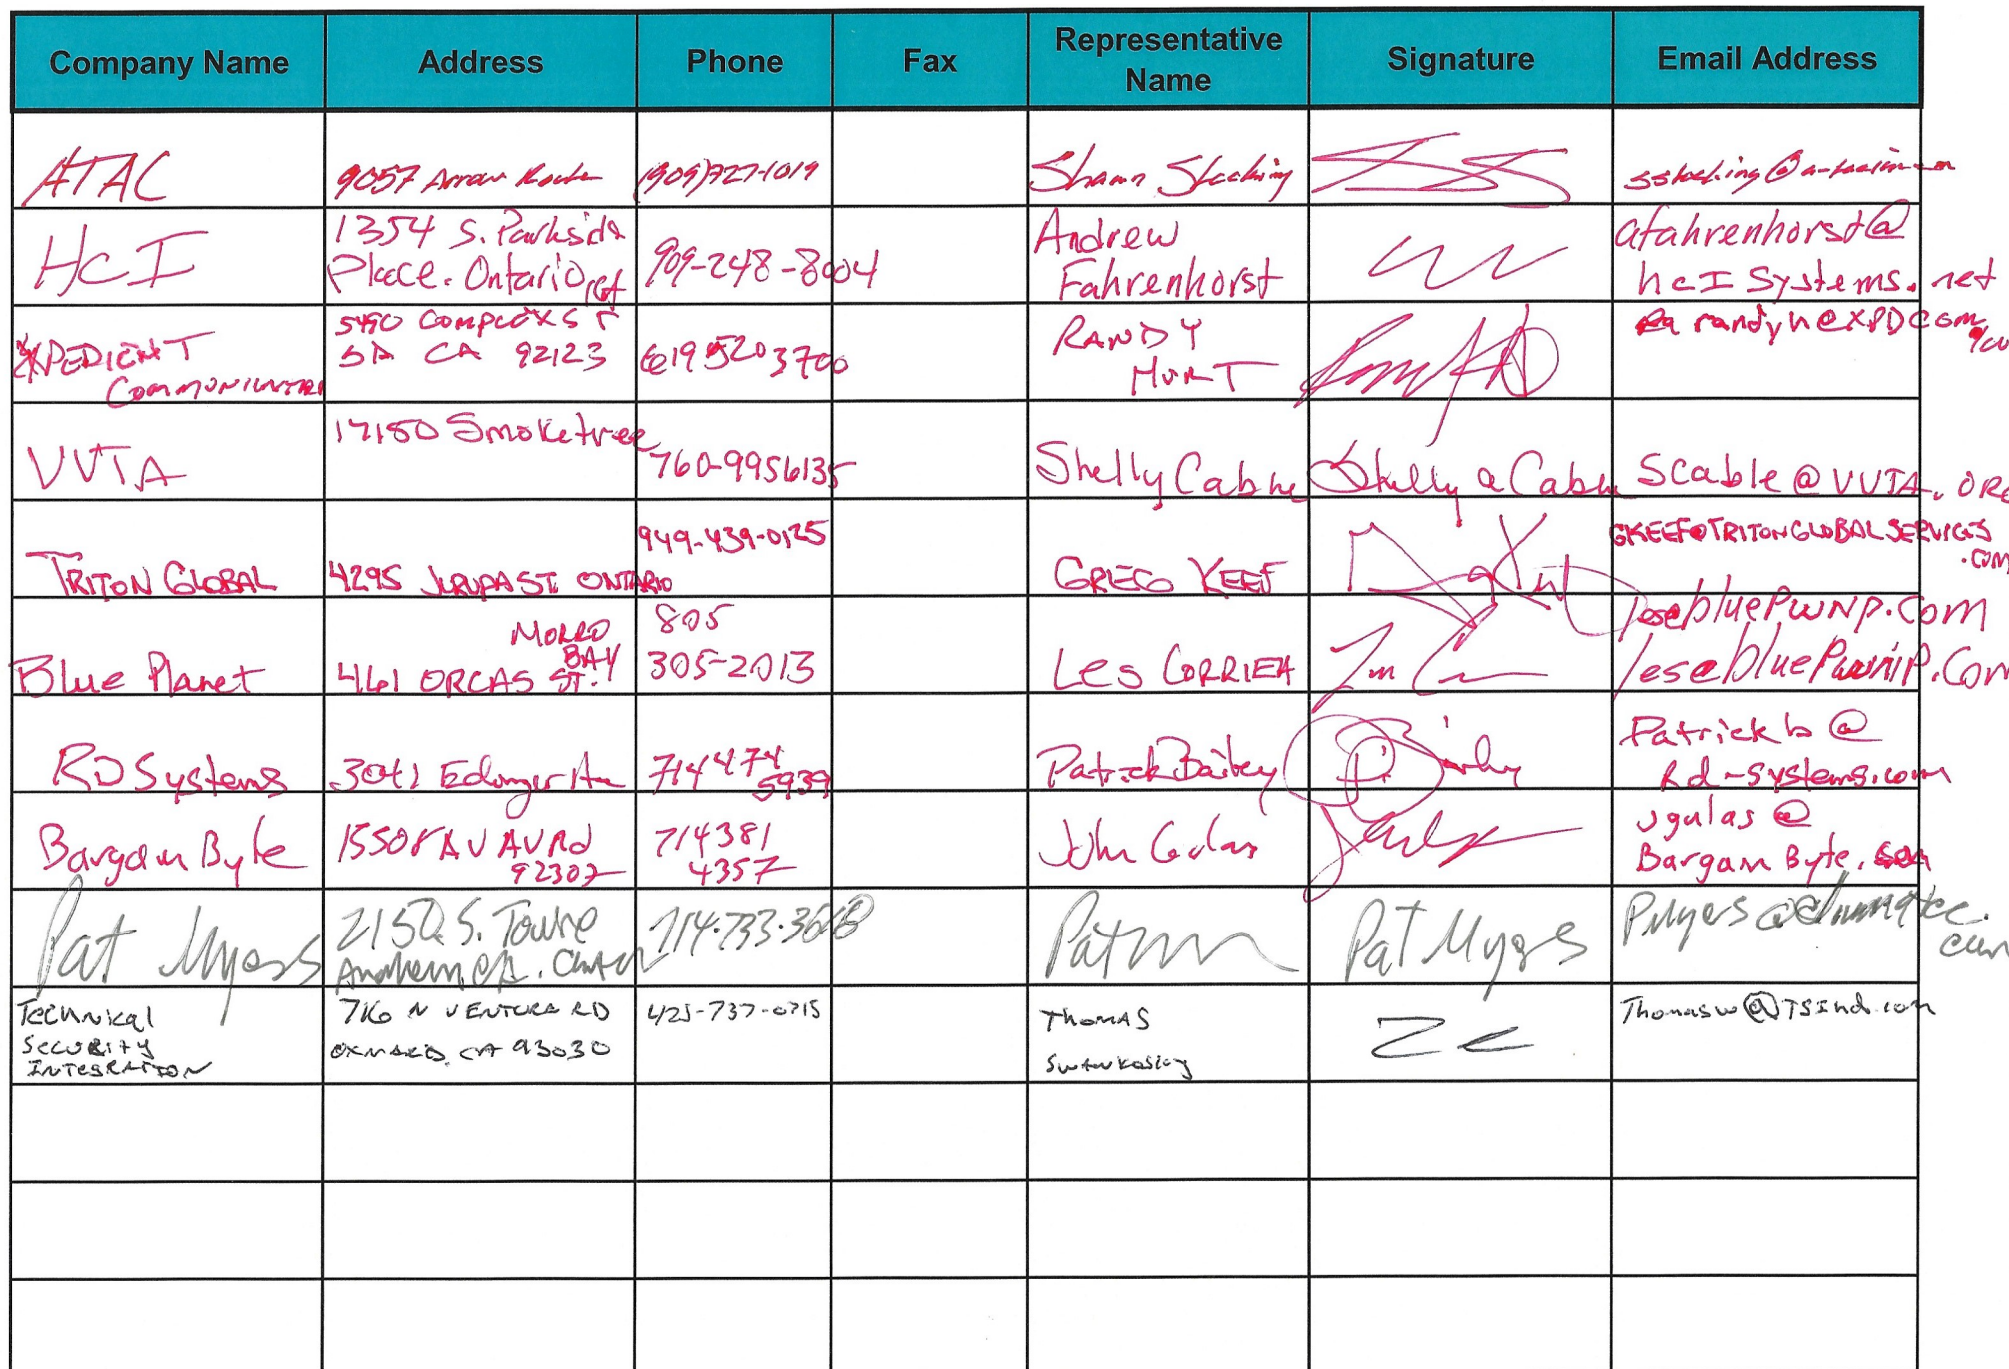 Company Name Address Phone Fax Representative Name Signature Email Address
ATAC 9057 Arrow (909)727-1019 Shawn
HCI 1354 S. Parkside Place. Ontario 909-248-8004 Andrew Fahrenhorst afahrenhorst@hcISystems.net
EXPEDIENT 5490 COMPLEX ST SD CA 92123 619 520 3700 RANDY HURT
VVTA 17150 Smoketree 760-9956135 Shelly Cable Shelly a Cable Scable@VVTA.ORG
TRITON GLOBAL 4295 JURUPA ST. ONTARIO 949-439-0125 GREG KEEF GKEEF@TRITONGLOBALSERVICES.COM
Blue Planet 461 ORCAS ST. MORRO BAY 805 305-2013 Les CORRIEA
RD Systems 3041 Edinger Av 714 474 5939 Patrick Bailey P. Bailey Patrickb@Rd-systems.com
Bargain Byte 714 381 4357 John Gulas jgulas@BargainByte.com
Pat Myers 2150 S. Towne Anaheim CA. Pat Myers
Technical Security INTEGRATION N VENTURA RD OXNARD, CA 93030 425-737-0715 THOMAS Thomasw@TSInd.com